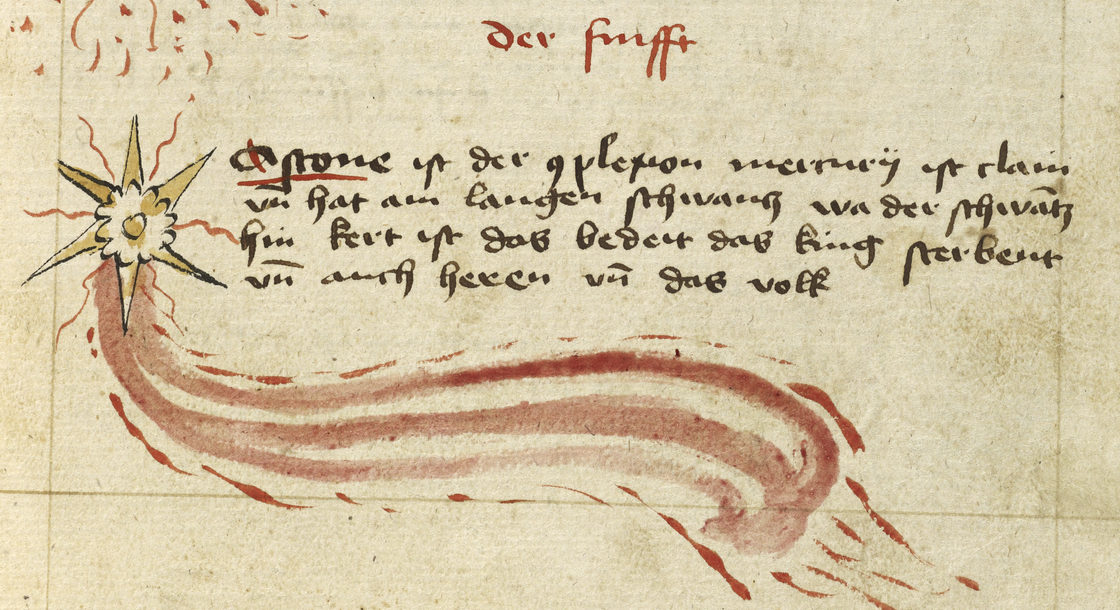 der fuifft
Astone ist der ꝯplexion mercurÿ ist clain
vn̄ hat ain langen schwantz wa der schwātz
hin kert ist das bedeit das king sterbent
vn̄ auch heren vn̄ das volk